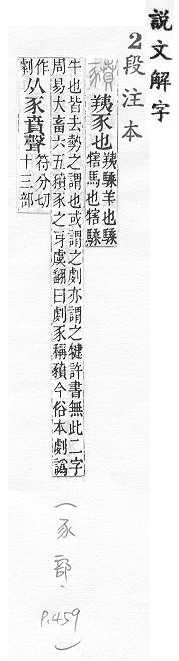 說文解字
2段注本
豶 羠豕也 羠騬羊也騬
犗馬也犗騬
牛也皆去勢之謂也或謂之劇亦謂之犍許書無此二字
周易大畜六五豶豕之牙虞翻曰劇豕稱豶今俗本劇譌
作
劇
从豕賁聲
符分切
十三部
(豕部. P.459)